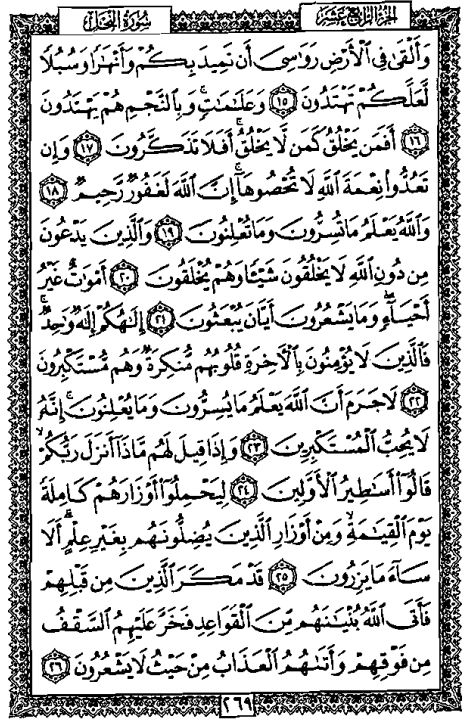 الجزء الرابع عشر
سورة النحل
وَأَلْقَىٰ فِى ٱلْأَرْضِ رَوَٰسِىَ أَن تَمِيدَ بِكُمْ وَأَنْهَٰرًا وَسُبُلًا
لَّعَلَّكُمْ تَهْتَدُونَ ١٥ وَعَلَٰمَٰتٍ ۚ وَبِٱلنَّجْمِ هُمْ يَهْتَدُونَ
١٦ أَفَمَن يَخْلُقُ كَمَن لَّا يَخْلُقُ ۗ أَفَلَا تَذَكَّرُونَ ١٧ وَإِن
تَعُدُّوا۟ نِعْمَةَ ٱللَّهِ لَا تُحْصُوهَآ ۗ إِنَّ ٱللَّهَ لَغَفُورٌ رَّحِيمٌ ١٨
وَٱللَّهُ يَعْلَمُ مَا تُسِرُّونَ وَمَا تُعْلِنُونَ ١٩ وَٱلَّذِينَ يَدْعُونَ
مِن دُونِ ٱللَّهِ لَا يَخْلُقُونَ شَيْـًٔا وَهُمْ يُخْلَقُونَ ٢٠ أَمْوَٰتٌ غَيْرُ
أَحْيَآءٍ ۖ وَمَا يَشْعُرُونَ أَيَّانَ يُبْعَثُونَ ٢١ إِلَٰهُكُمْ إِلَٰهٌ وَٰحِدٌ ۚ
فَٱلَّذِينَ لَا يُؤْمِنُونَ بِٱلْأَخِرَةِ قُلُوبُهُم مُّنكِرَةٌ وَهُم مُّسْتَكْبِرُونَ
٢٢ لَا جَرَمَ أَنَّ ٱللَّهَ يَعْلَمُ مَا يُسِرُّونَ وَمَا يُعْلِنُونَ ۚ إِنَّهُۥ
لَا يُحِبُّ ٱلْمُسْتَكْبِرِينَ ٢٣ وَإِذَا قِيلَ لَهُم مَّاذَآ أَنزَلَ رَبُّكُمْ ۙ
قَالُوٓا۟ أَسَٰطِيرُ ٱلْأَوَّلِينَ ٢٤ لِيَحْمِلُوٓا۟ أَوْزَارَهُمْ كَامِلَةً
يَوْمَ ٱلْقِيَٰمَةِ ۙ وَمِنْ أَوْزَارِ ٱلَّذِينَ يُضِلُّونَهُم بِغَيْرِ عِلْمٍ ۗ أَلَا
سَآءَ مَا يَزِرُونَ ٢٥ قَدْ مَكَرَ ٱلَّذِينَ مِن قَبْلِهِمْ
فَأَتَى ٱللَّهُ بُنْيَٰنَهُم مِّنَ ٱلْقَوَاعِدِ فَخَرَّ عَلَيْهِمُ ٱلسَّقْفُ
مِن فَوْقِهِمْ وَأَتَىٰهُمُ ٱلْعَذَابُ مِنْ حَيْثُ لَا يَشْعُرُونَ ٢٦
٢٦٩